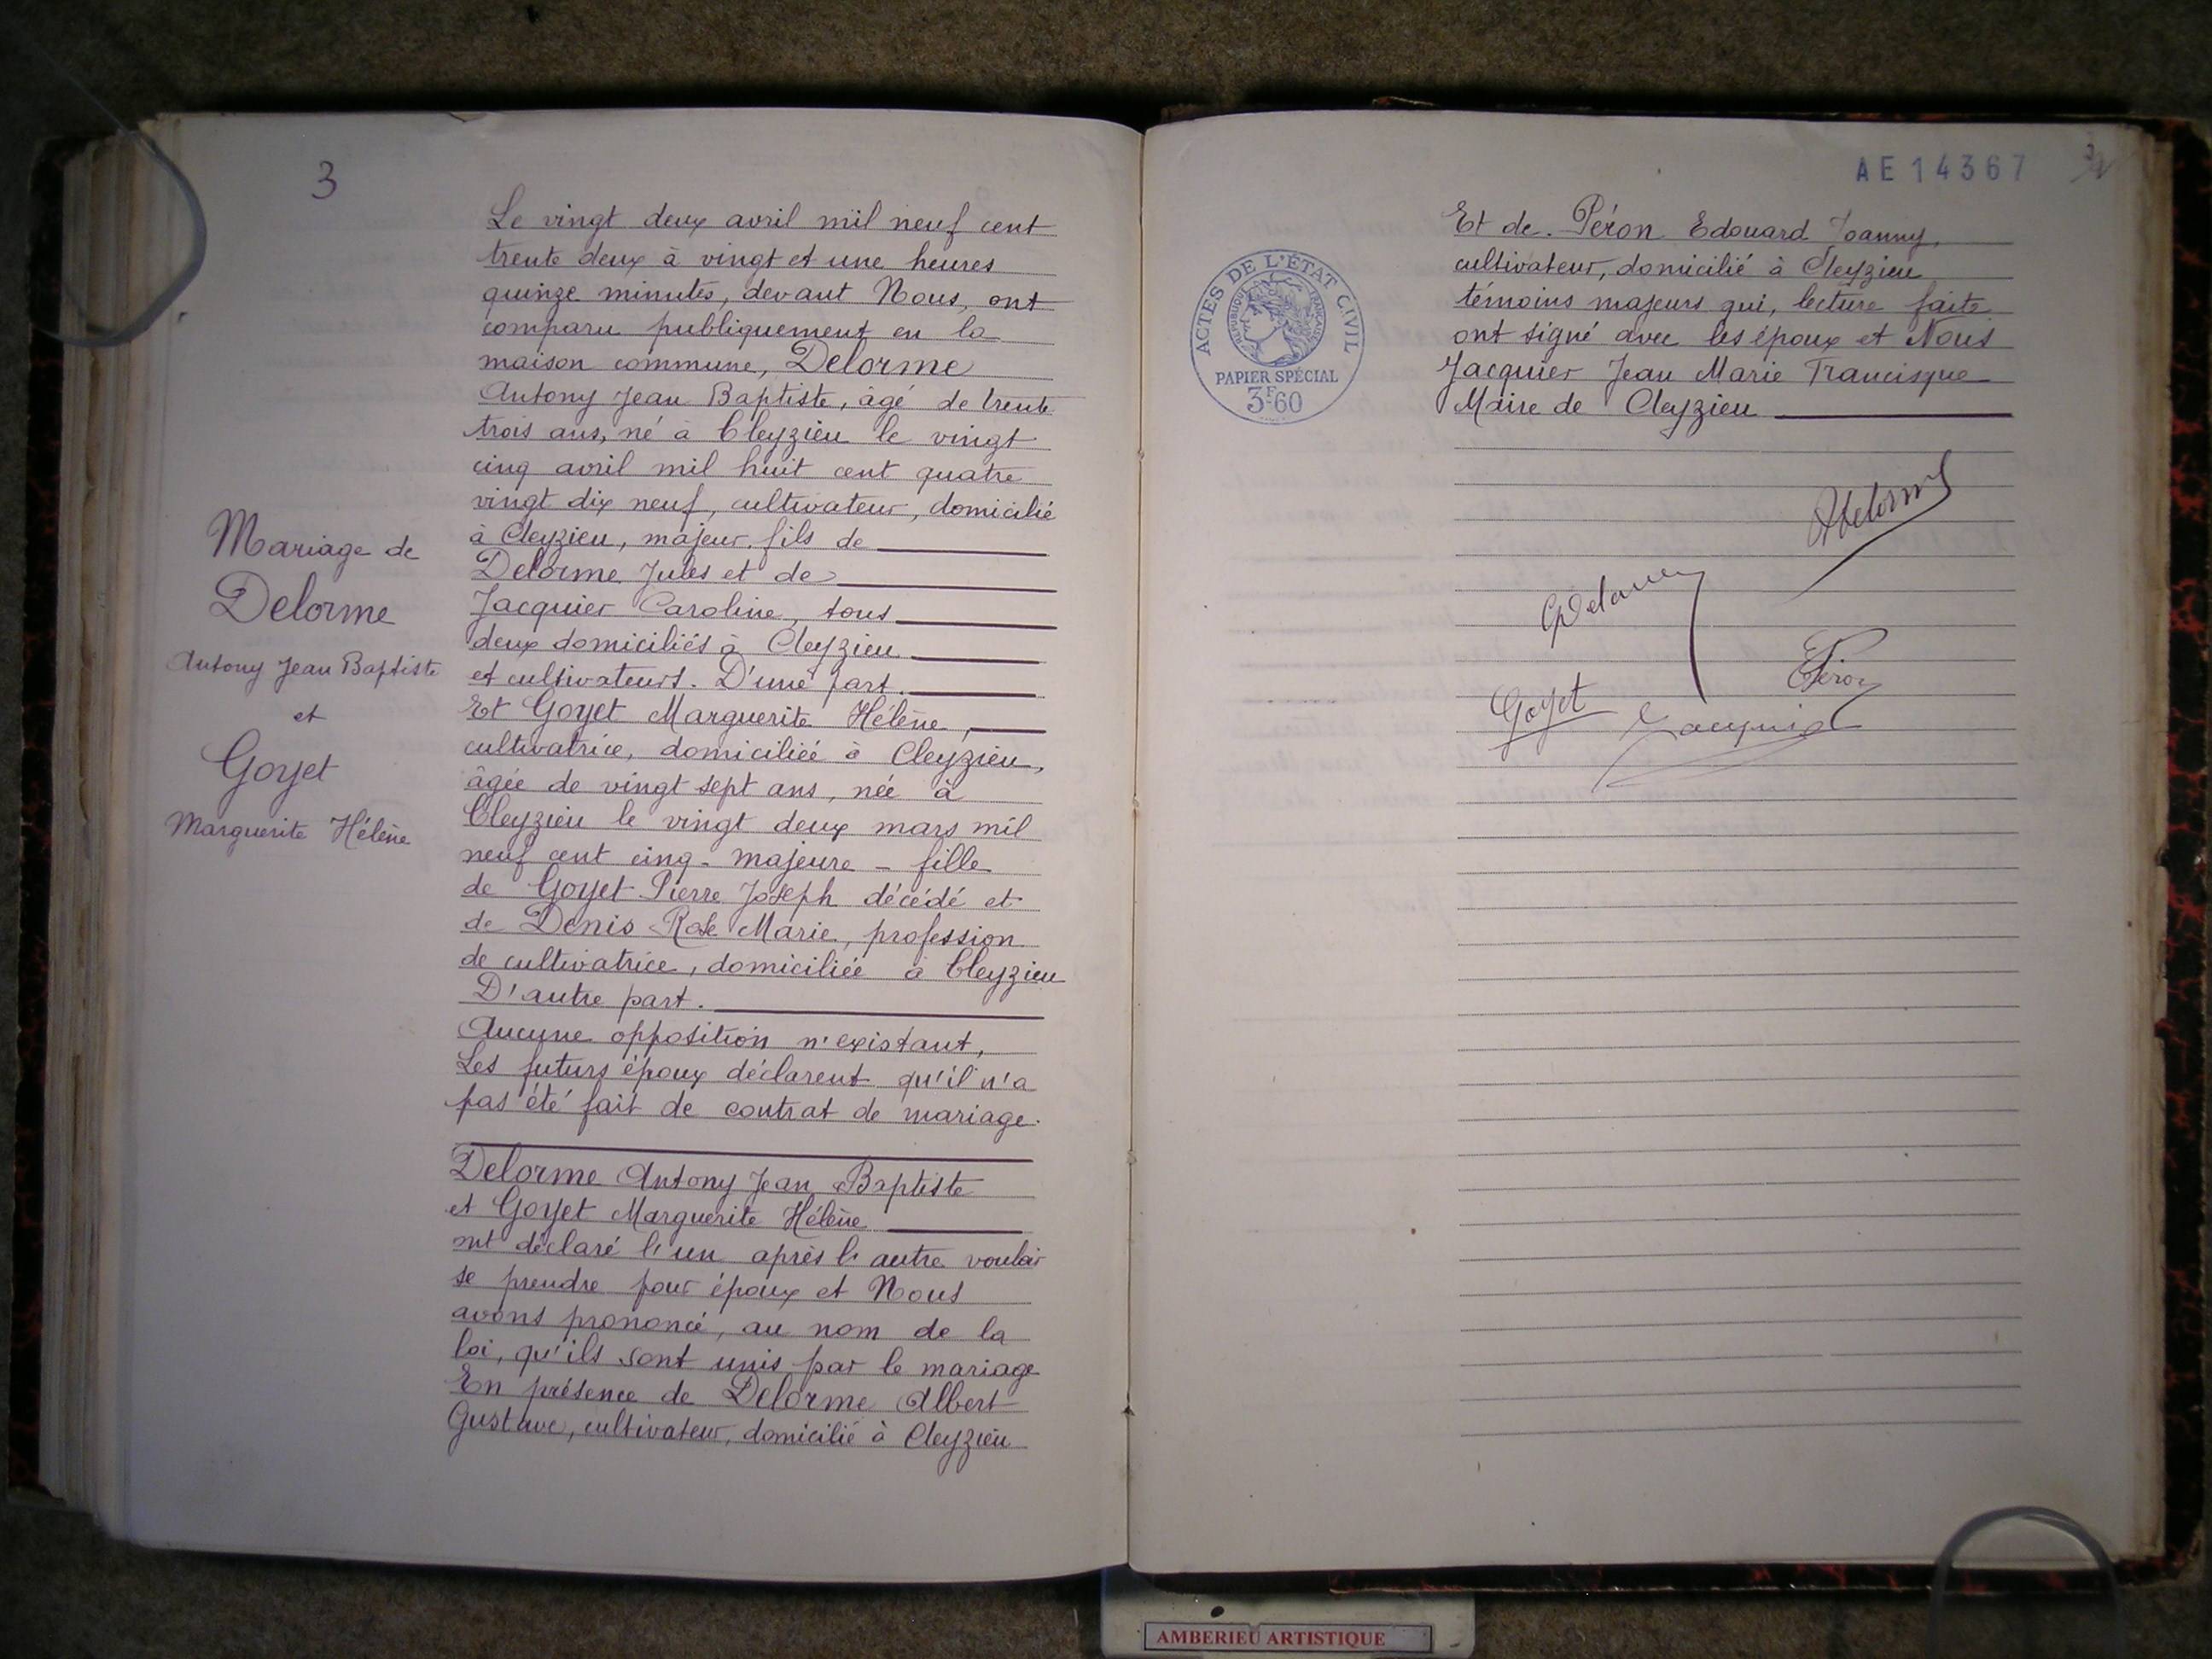 3
Le vingt deux avril mil neuf cent
trente deux à vingt et une heures
quinze minutes, devant Nous, ont
comparu publiquement en la
maison commune, Delorme
Antony Jean Baptiste, âgé de trente
trois ans, né à Cleyzieu le vingt
cinq avril mil huit cent quatre
vingt dix neuf, cultivateur, domicilié
à Cleyzieu, majeur, fils de
Delorme Jules et de
Jacquier Caroline, tous
deux domiciliés à Cleyzieu
et cultivateurs. D'une part.
Et Goyet Marguerite Hélène,
cultivatrice, domiciliée à Cleyzieu,
âgée de vingt sept ans, née à
Cleyzieu le vingt deux mars mil
neuf cent cinq - majeure - fille
de Goyet Pierre Joseph décédé et
de Denis Rose Marie, profession
de cultivatrice, domiciliée à Cleyzieu
D'autre part.
Aucune opposition n'existant,
Les futurs époux déclarent qu'il n'a
pas été fait de contrat de mariage.
Delorme Antony Jean Baptiste
et Goyet Marguerite Hélène
ont déclaré l'un après l'autre vouloir
se prendre pour époux et Nous
avons prononcé, au nom de la
loi, qu'ils sont unis par le mariage
En présence de Delorme Albert
Gustave, cultivateur, domicilié à Cleyzieu
Mariage de
Delorme
Antony Jean Baptiste
et
Goyet
Marguerite Hélène
AE 14367
ACTES DE L'ÉTAT CIVIL
RÉPUBLIQUE FRANÇAISE
PAPIER SPÉCIAL
3F60
Et de Péron Edouard Joanny,
cultivateur, domicilié à Cleyzieu
témoins majeurs qui, lecture faite
ont signé avec les époux et Nous
Jacquier Jean Marie Francisque
Maire de Cleyzieu
ADelorme
GDelorme
EPéron
Goyet
Jacquier
AMBERIEU ARTISTIQUE